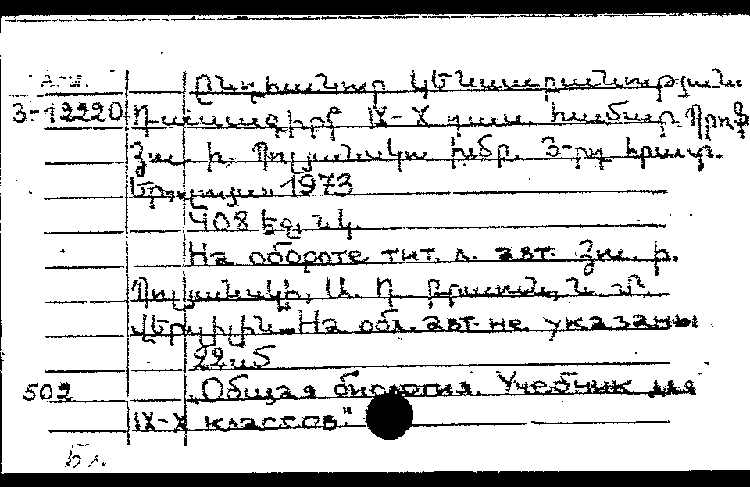 Ընդհանուր կենսաբանություն.
3-12220 Դասագիրք IX-X դաս. համար. Պրոֆ
Յու. Ի. Պոլյանսկու խմբ. 3-րդ հրատ.
Երևան 1973
408 էջ, նկ.
На обороте тит. л. авт. Յու. Ի.
Պոլյանսկի, Ա. Դ. Բրաուն, Ն. Մ.
Վերզիլին. На обл. авт. не указаны
502 „Общая биология. Учебник для
IX-X классов."